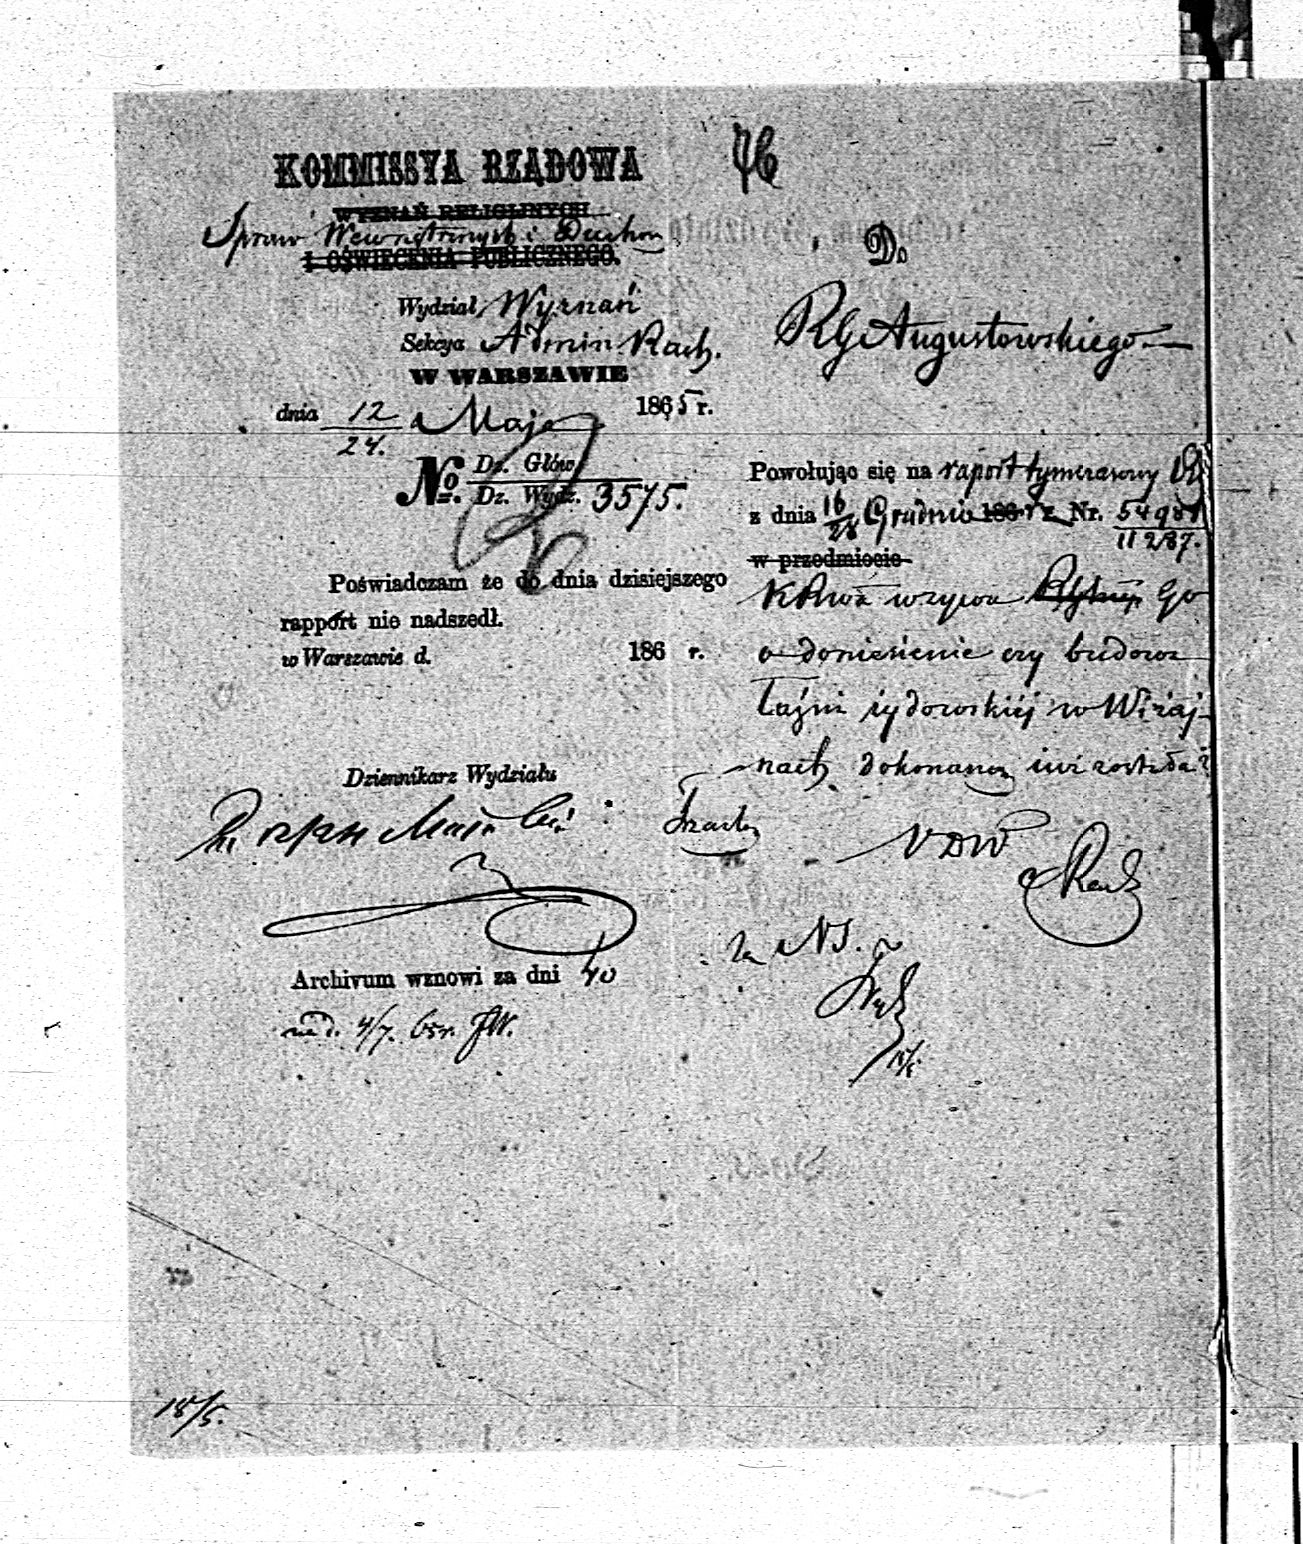 46
KOMMISSYA RZĄDOWA
WYZNAŃ RELIGIJNYCH
Spraw Wewnętrznych i Duchon
I OŚWIECENIA PUBLICZNEGO.
Wydział Wyznań
Sekcya Admin. Rach.
W WARSZAWIE
dnia 12/24. Maja 1865 r.
No. Dz. Głów.
Dz. Wydz. 3575.
Poświadczam że do dnia dzisiejszego
rapport nie nadszedł.
w Warszawie d. 186 r.
Dziennikarz Wydziału
Archivum wznowi za dni 40
4/7. 65r.
18/5.
Do
RG Augustowskiego
Powołując się na raport tymczasowy
z dnia 16/28 Grudnia 186 r z Nr. 54981/11287.
w przedmiocie
KRwa wzywa Go
o doniesienie czy budowa
łaźni żydowskiéj w Wiżaj-
nach dokonaną już została?
VDW
za NS.